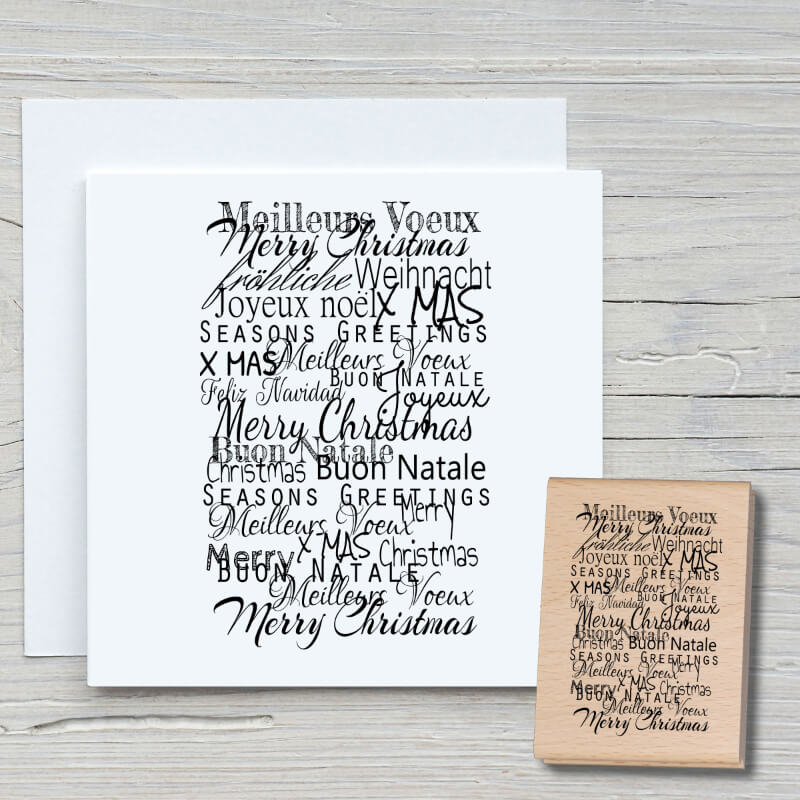 Meilleurs Voeux
Merry Christmas
fröhliche Weihnacht
Joyeux noël X MAS
SEASONS GREETINGS
X MAS Meilleurs Voeux
BUON NATALE
Feliz Navidad Joyeux
Merry Christmas
Buon Natale
Christmas Buon Natale
SEASONS GREETINGS
Merry
Meilleurs Voeux
Merry X MAS Christmas
BUON NATALE
Meilleurs Voeux
Merry Christmas
Meilleurs Voeux
Merry Christmas
fröhliche Weihnacht
Joyeux noël X MAS
SEASONS GREETINGS
X MAS Meilleurs Voeux
BUON NATALE
Feliz Navidad Joyeux
Merry Christmas
Buon Natale
Christmas Buon Natale
SEASONS GREETINGS
Merry
Meilleurs Voeux
Merry X MAS Christmas
BUON NATALE
Meilleurs Voeux
Merry Christmas